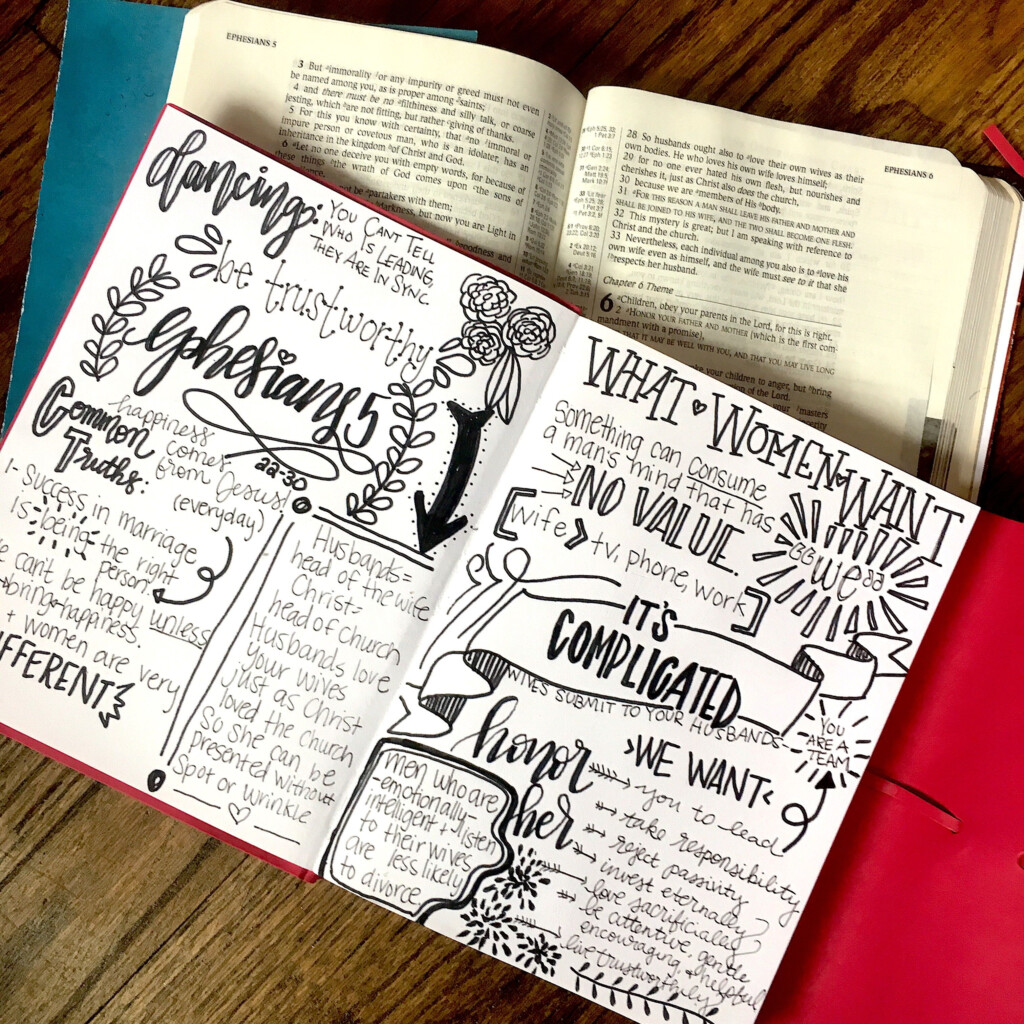 EPHESIANS 5
3 But immorality or any impurity or greed must not even
be named among you, as is proper among saints;
4 and there must be no filthiness and silly talk, or coarse
jesting, which are not fitting, but rather giving of thanks.
5 For this you know with certainty, that no immoral or
impure person or covetous man, who is an idolater, has an
inheritance in the kingdom of Christ and God.
6 Let no one deceive you with empty words, for because of
these things the wrath of God comes upon the sons of
not be partakers with them;
darkness, but now you are Light in
28 So husbands ought also to love their own wives as their
own bodies. He who loves his own wife loves himself;
29 for no one ever hated his own flesh, but nourishes and
cherishes it, just as Christ also does the church,
30 because we are members of His body.
31 FOR THIS REASON A MAN SHALL LEAVE HIS FATHER AND MOTHER AND
SHALL BE JOINED TO HIS WIFE, AND THE TWO SHALL BECOME ONE FLESH.
32 This mystery is great; but I am speaking with reference to
Christ and the church.
33 Nevertheless, each individual among you also is to love his
own wife even as himself, and the wife must see to it that she
respects her husband.
Chapter 6 Theme
6 Children, obey your parents in the Lord, for this is right.
2 HONOR YOUR FATHER AND MOTHER (which is the first com-
mandment with a promise),
THAT IT MAY BE WELL WITH YOU, AND THAT YOU MAY LIVE LONG
your children to anger, but bring
of the Lord.
your masters
EPHESIANS 6
dancing:
YOU CANT TELL
WHO IS LEADING,
THEY ARE IN SYNC
be trustworthy
ephesians 5
22-30
Common
Truths:
happiness
comes
from Jesus!
(everyday)
1- Success in marriage
is being the right
person
can't be happy unless
bring happiness.
+ women are very
DIFFERENT
Husbands =
head of the wife
Christ =
head of Church
Husbands love
your wives
just as Christ
loved the church
so she can be
presented without
spot or wrinkle
WHAT WOMEN WANT
Something can consume
a man's mind that has
NO VALUE.
[wife > tv, phone, work]
"we"
IT'S
COMPLICATED
WIVES SUBMIT TO YOUR HUSBANDS
YOU
ARE A
TEAM
honor
her
>WE WANT<
you to lead
take responsibility
reject passivity
invest eternally
love sacrificially
be attentive, gentle
encouraging, + helpful
live trustworthily
men who are
-emotionally-
intelligent + listen
to their wives
are less likely
to divorce.